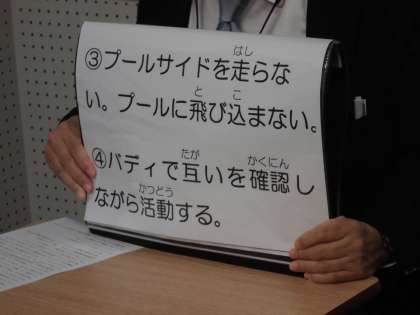 ③プールサイドを走らな
い。プールに飛び込まない。
④バディで互いを確認し
ながら活動する。